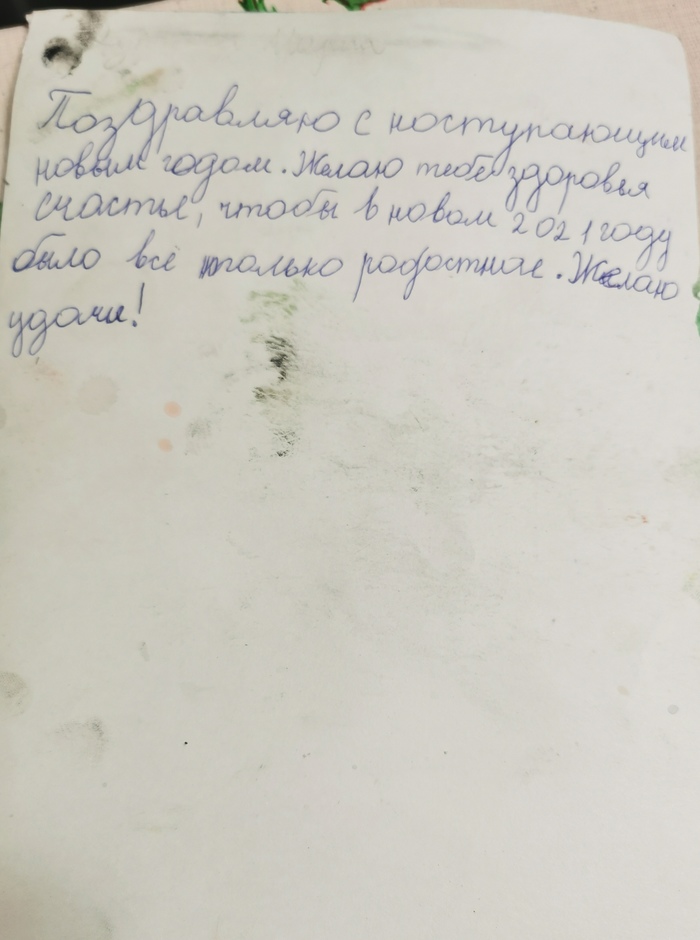 Поздравляю с наступающим
новым годом. Желаю тебе здоровья
счастье, чтобы в новом 2021 году
было всё только радостное. Желаю
удачи!